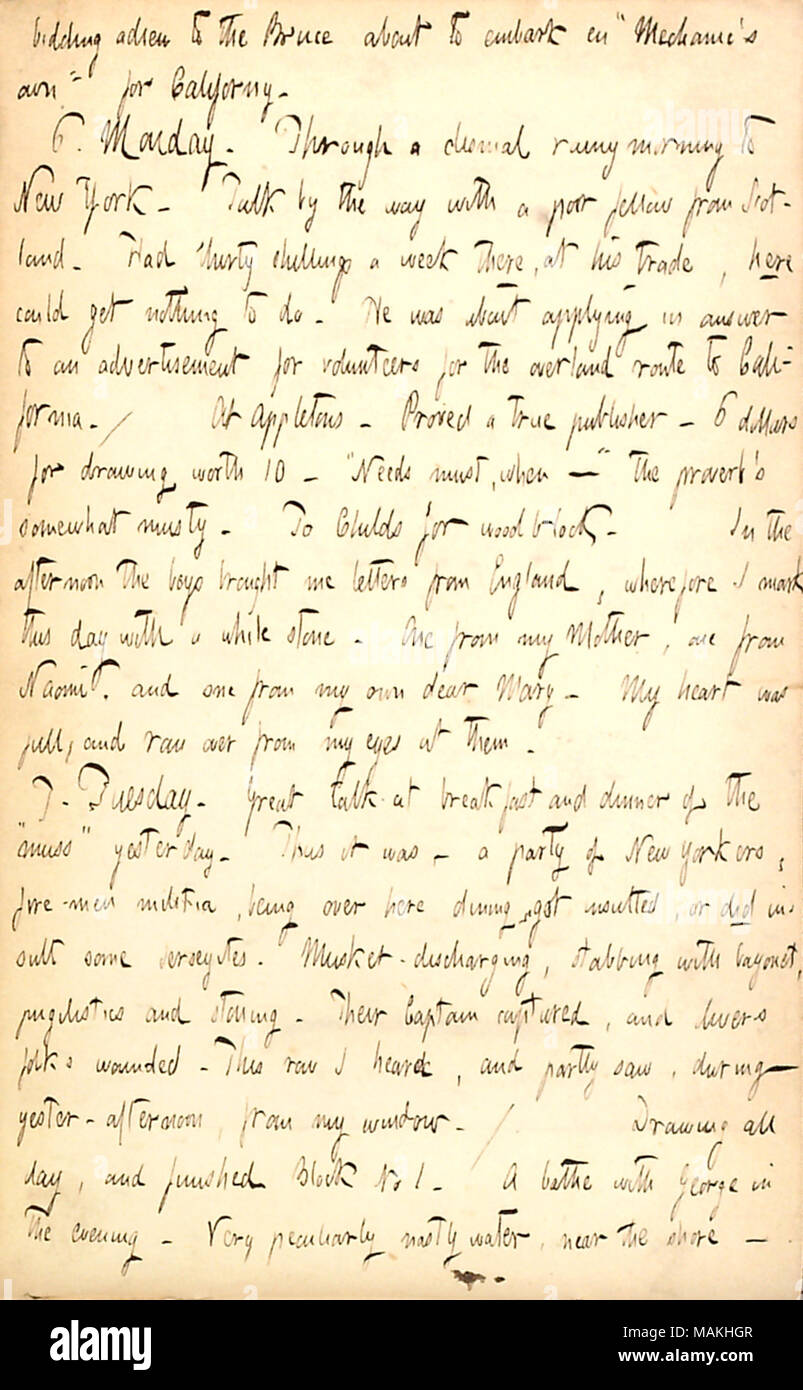 bidding adieu to the Bruce about to embark en "Mechanic's
own" for Californy -
6. Monday - Through a dismal rainy morning to
New York - Talk by the way with a poor fellow from Scot-
land - Had thirty shillings a week there, at his trade, here
could get nothing to do - He was about applying in answer
to an advertisement for volunteers for the overland route to Cali-
fornia. / At Appletons - Proved a true publisher - 6 dollars
for drawing worth 10 - "Needs must, when —" the proverb's
somewhat musty - To Childs for wood block - In the
afternoon the boys brought me letters from England, wherefore I mark
this day with a white stone - One from my Mother, one from
Naomi, and one from my own dear Mary - My heart was
full, and ran over from my eyes at them -
7. Tuesday - Great talk at breakfast and dinner of the
"muss" yesterday - Thus it was - a party of New Yorkers,
fire-men militia, being over here dining, got insulted, or did in-
sult some Jerseyites. Musket-discharging, stabbing with bayonet,
pugilistics and stoning - Their Captain captured, and divers
folks wounded - This row I heard, and partly saw, during
yester-afternoon, from my window - / Drawing all
day, and finished Block No 1 - A bathe with George in
the evening - Very peculiarly nasty water, near the shore —
alamy
Image ID: MAKHGR
www.alamy.com